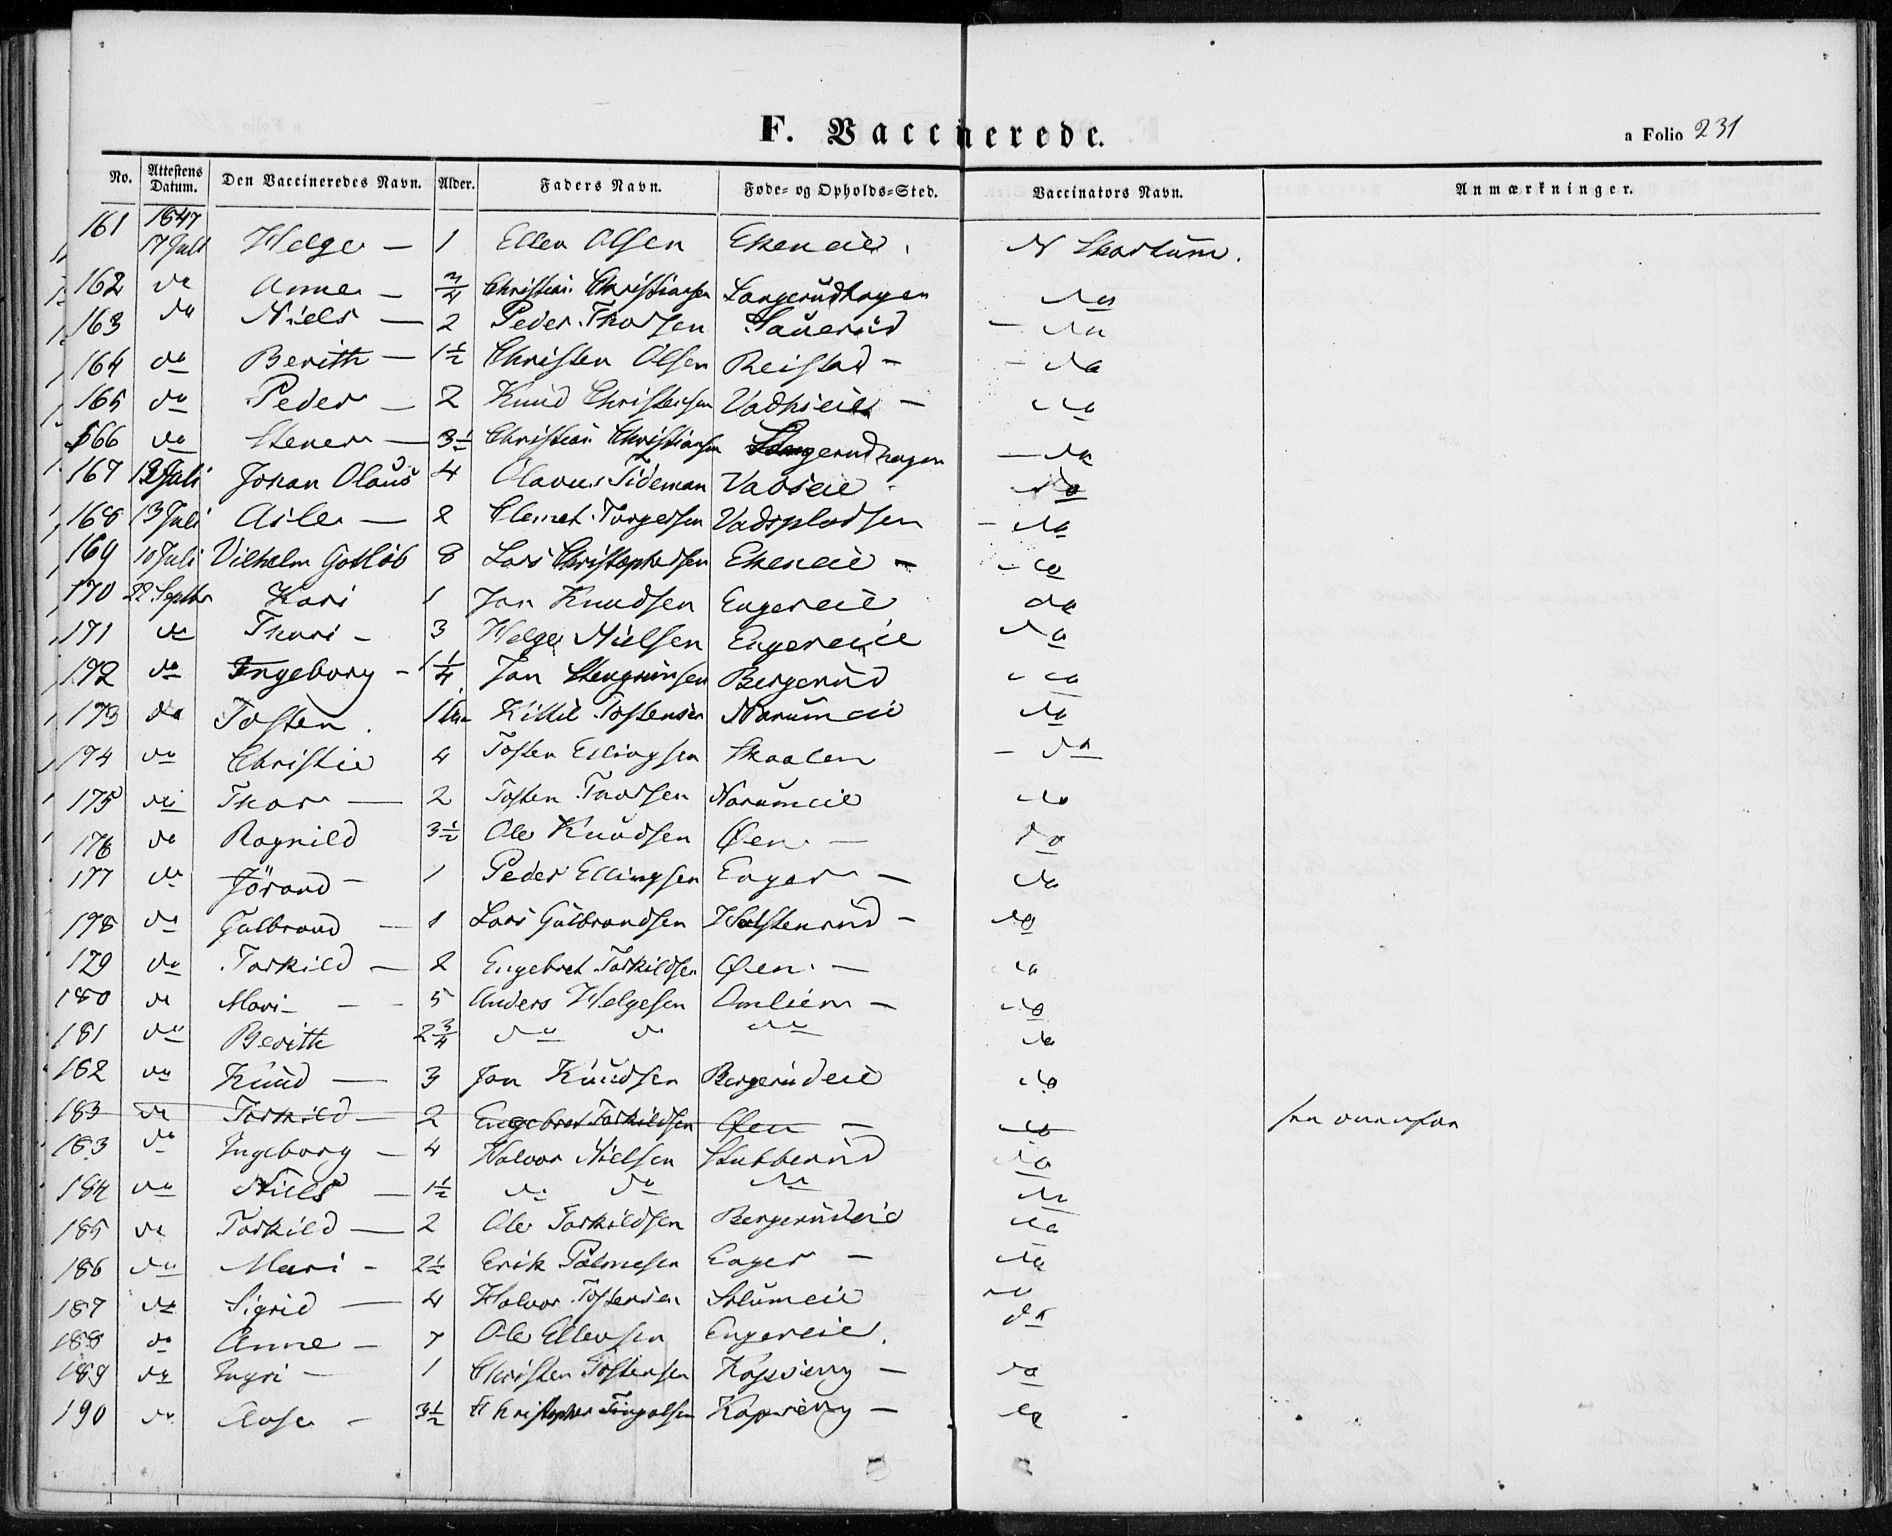 F. Vaccinerede.
a Folio 231
No. Attestens Datum. Den Vaccineredes Navn. Alder. Faders Navn. Føde- og Opholds-Sted. Vaccinators Navn. Anmærkninger.
161 1847 17 Juli Helge - 1 Ellen Olsen Ekeneie. N Skartum.
162 do Anne - 3/4 Christian Christiansen Langerudhagen do
163 do Niels - 2 Peder Thorsen Sauerud - do
164 do Berith - 1 1/2 Christen Olsen Reistad - - do
165 do Peder - 2 Knud Christensen Vadhseie - do
166 do Stener - 3 1/2 Christian Christiansen Langerudhagen - do
167 13 Juli Johan Olaus 4 Olavus Tideman Vadseie do
168 13 Juli Asle - 2 Clemet Torgersen Vadspladsen - do
169 10 Juli Vilhelm Gotlob 8 Lars Christophersen Ekeneie - - do
170 22 Septbr Kari 1 Jon Knudsen Engereie do
171 do Thori - 3 Helge Nielsen Engereie do
172 do Ingeborg - 1 1/4 Jon Stengrimsen Bergerud do
173 do Tosten. 1 Kittil Tostensen Narumeie do
174 do Christie 4 Tosten Ellingsen Skaalen - do
175 do Thor - 2 Tosten Thorsen Narumeie do
176 do Ragnild 3 1/2 Ole Knudsen Øen - do
177 do Jörand - 1 Peder Ellingsen Enger - do
178 do Gulbrand - 1 Lars Gulbrandsen Holstenrud - do
179 do Torkild - 2 Engebret Torkildsen Øen. - do
180 do Mari - - 5 Anders Helgesen Omlien - do
181 do Berith 2 3/4 do do do do
182 do Knud - 3 Jon Knudsen Bergerudeie do
183 do Torkild - 2 Engebret Torkildsen Øen - do
183 do Ingeborg - 4 Halvor Nielsen Stubberud do
184 do Niels - 1 1/2 do do do do
185 do Torkild - 2 Ole Torkildsen Bergerudeie do
186 do Mari - 2 1/2 Erik Palmesen Enger - do
187 do Sigrid - 4 Halvor Tostensen Solumeie do
188 do Anne - 7 Ole Ellensen Engereie. do
189 do Ingri - 1 Christen Tostensen Kopsveng - do
190 do Aase - 3 1/2 Christopher Kopsveng - do